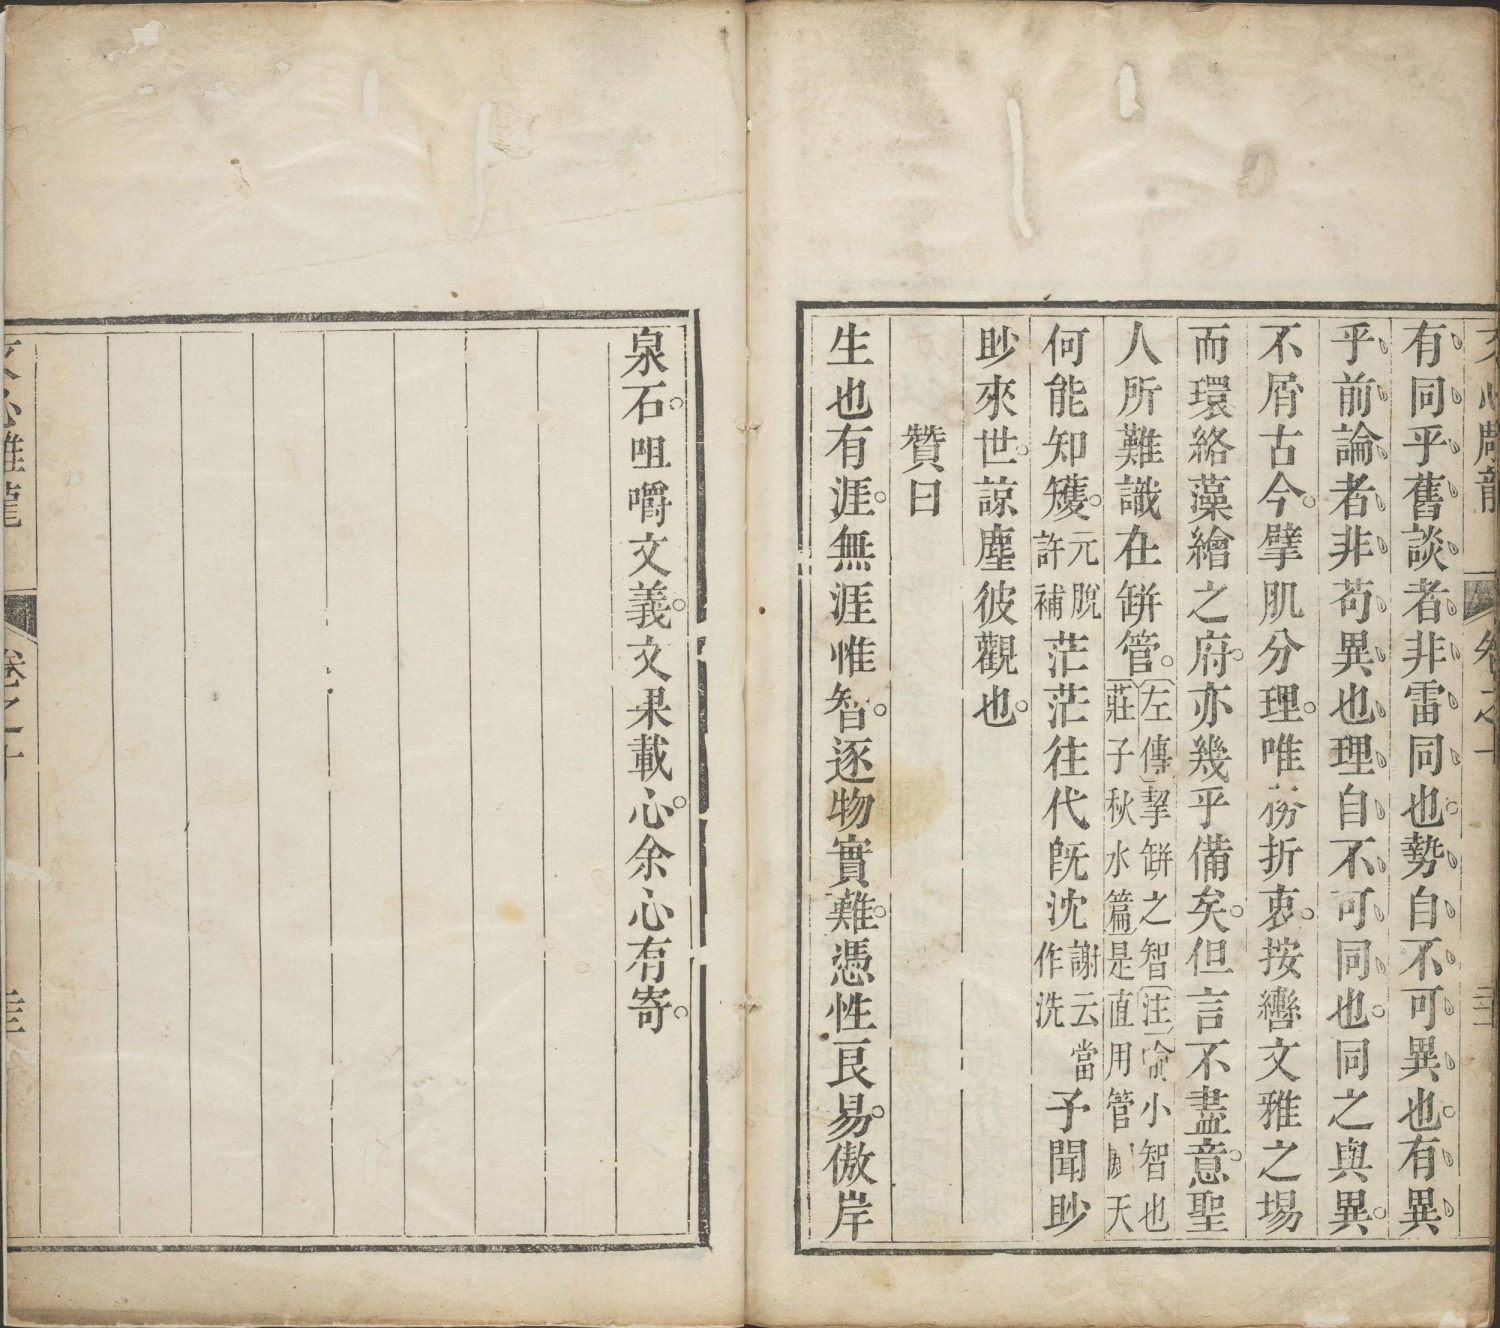 文心雕龍 卷之十
有同乎舊談者非雷同也。勢自不可異也。有異
乎前論者非苟異也理自不可同也。同之與異。
不屑古今。擘肌分理。唯務折衷。按轡文雅之場
而環絡藻繪之府。亦幾乎備矣。但言不盡意。聖
人所難識在缾管。〔左傳〕挈缾之智〔注〕喻小智也
〔莊子秋水篇〕是直用管闚天
何能知矱。元脫許補茫茫往代旣沈謝云當作洗予聞眇
眇來世。諒塵彼觀也。
贊曰
生也有涯。無涯惟智。逐物實難。憑性良易。傲岸
泉石。咀嚼文義。文果載心。余心有寄。
文心雕龍 卷之十